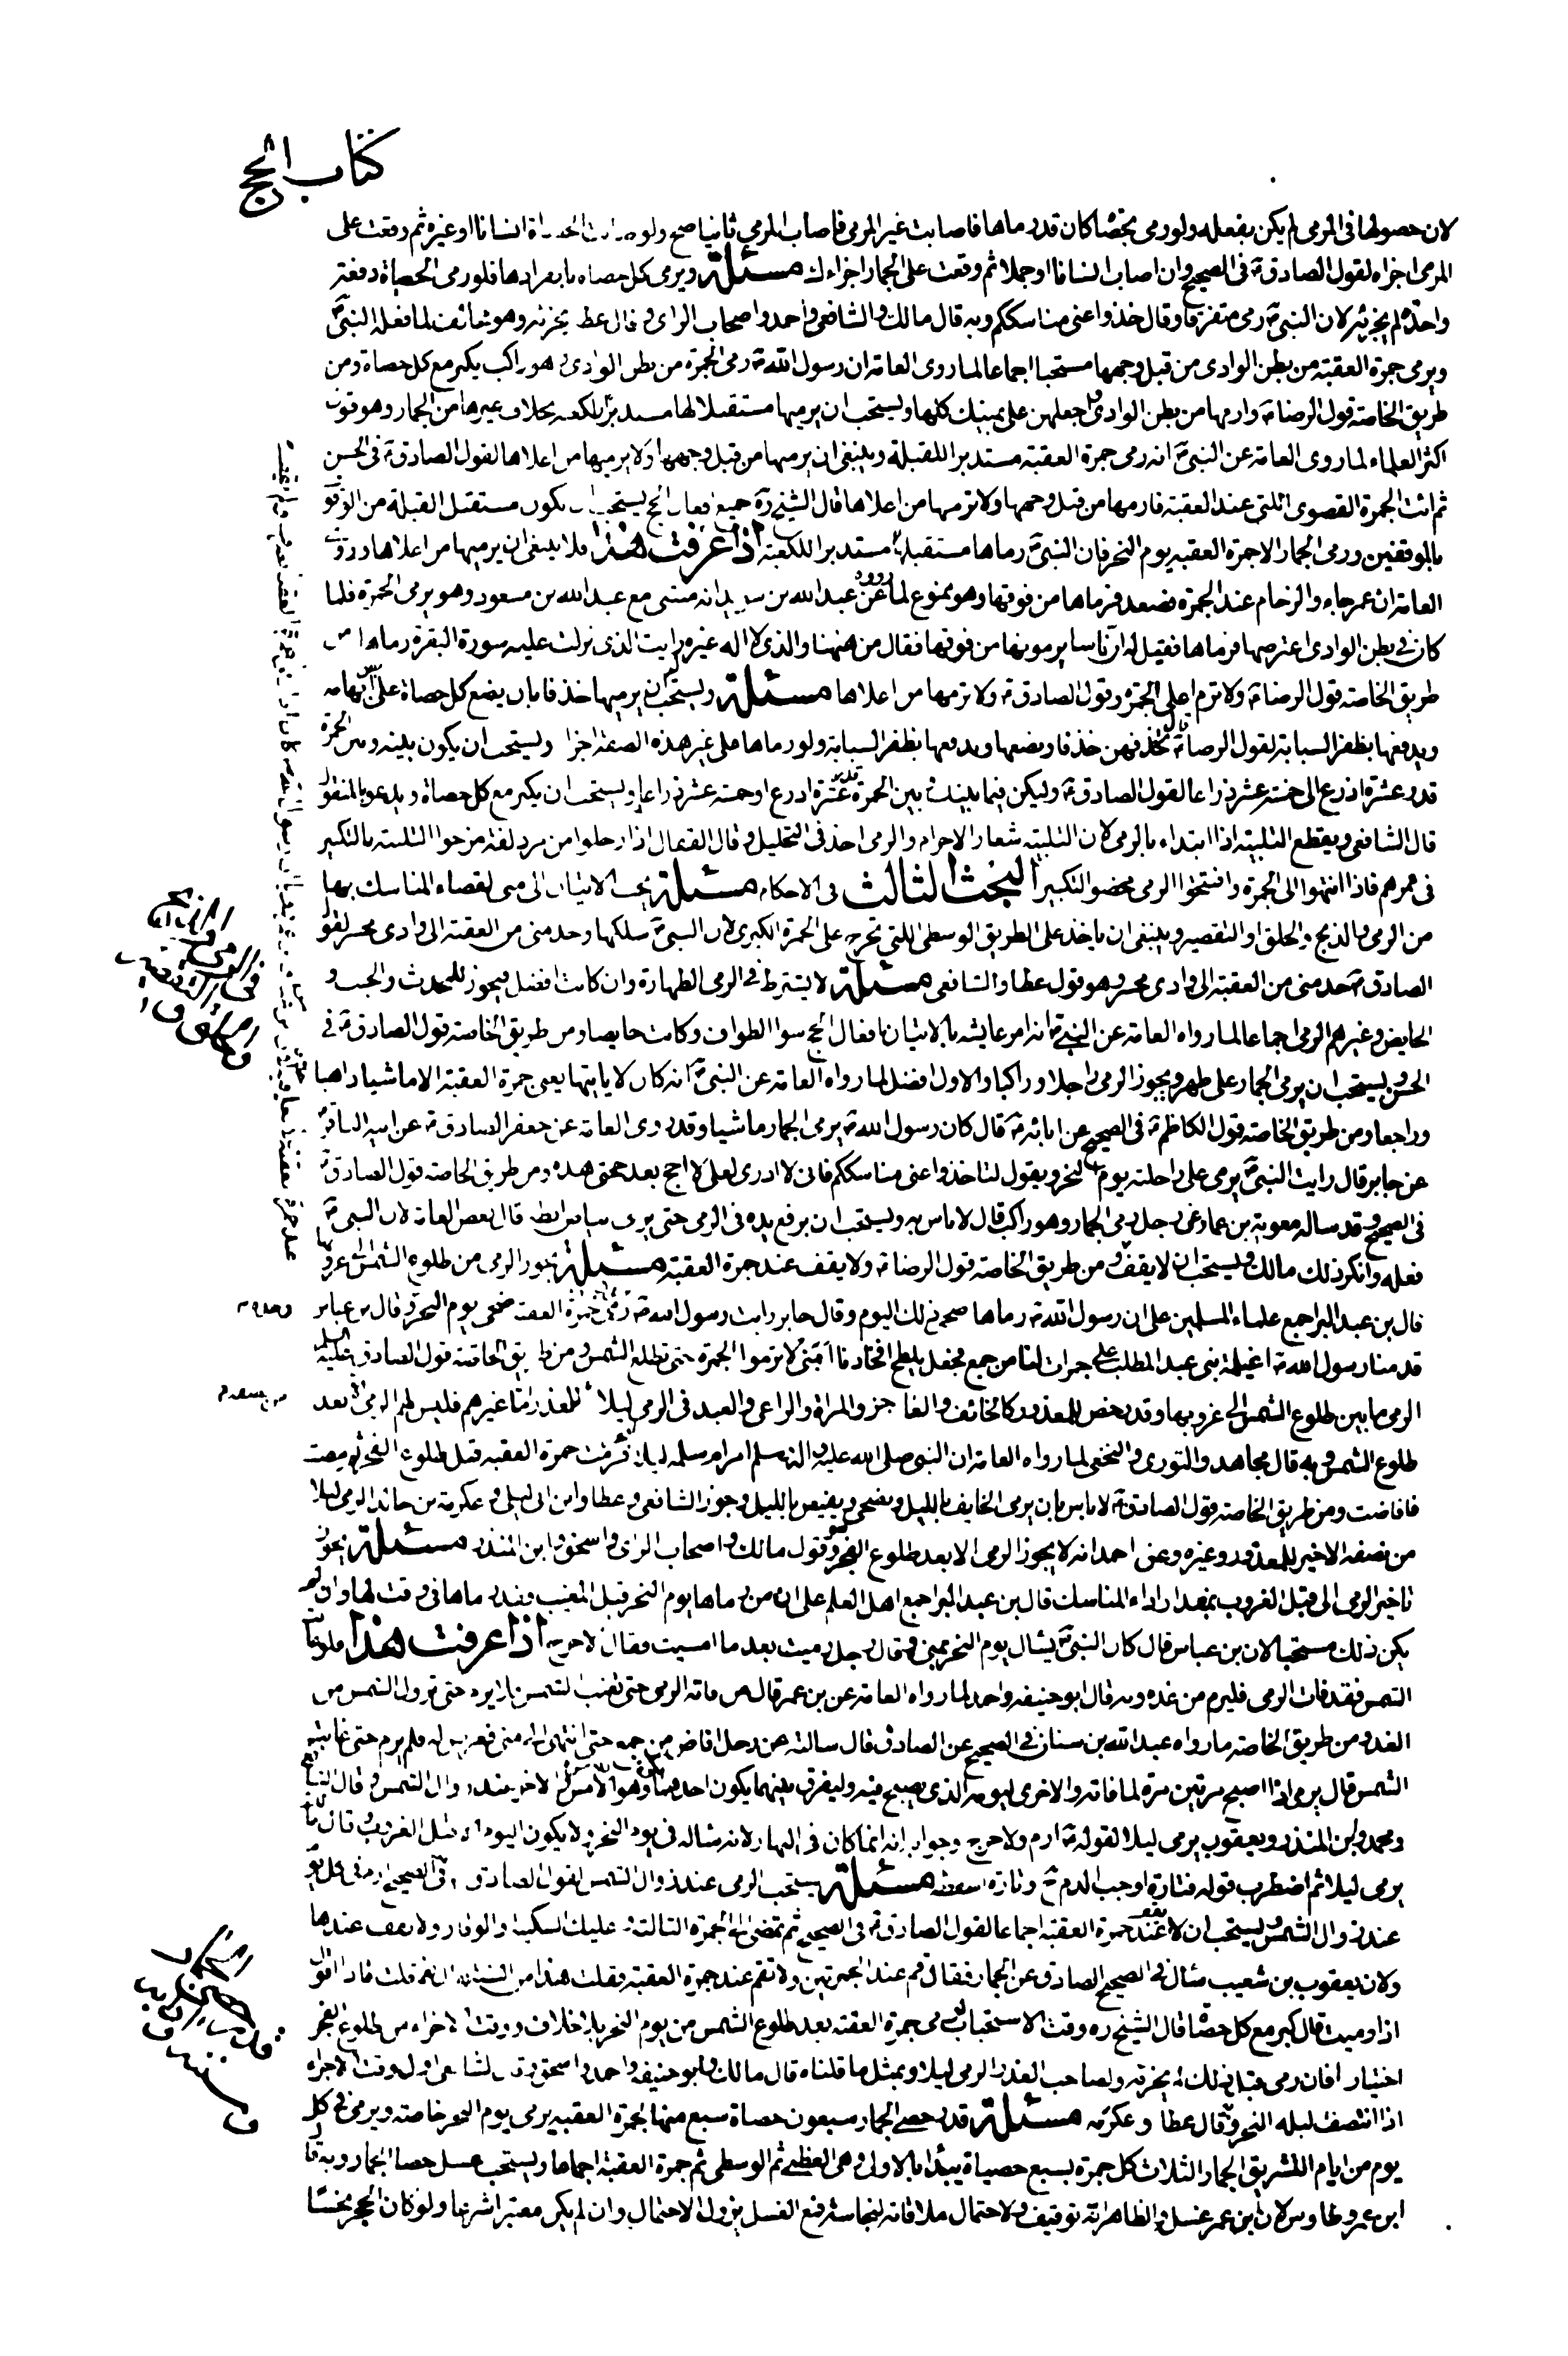 كتاب الحج
لان حصولها فى المرمى لم يكن بفعله ولو رمى بحصاة كان قد رماها فاصابت غير المرمى فاصاب المرمى ثانيا صح ولو اصابت الحصاة انسانا او غيره ثم وقعت على
المرمى اجزاه لقول الصادق ع فى الصحيح وان اصاب انسانا او جملا ثم وقعت على الجمار اجزاءك مسئلة ويرمى كل حصاه بانفرادها فلو رمى الحصياة دفعة
واحدة لم يجزئه لان النبى ص رمى متفرقا وقال خذوا عنى مناسككم وبه قال مالك والشافعى واحمد واصحاب الراى وقال عطا يجزئه وهو مخالف لما فعله النبى ص
ويرمى جمرة العقبة من بطن الوادى من قبل وجهها مستحبا اجماعا لما روى العامة ان رسول الله ص رمى الجمرة من بطن الوادى وهو راكب يكبر مع كل حصاة ومن
طريق الخاصة قول الرضا ع وارمها من بطن الوادى واجعلهن على يمينك كلها ويستحب ان يرميها مستقبلا لها مستدبرا للكعبة بخلاف غيرها من الجمار وهو قول
اكثر العلماء لما روى العامة عن النبى ص انه رمى جمرة العقبة مستدبرا للقبلة وينبغى ان يرميها من قبل وجهها ولا يرميها من اعلاها لقول الصادق ع فى الحسن
ثم ائت الجمرة القصوى التى عند العقبة فارمها من قبل وجهها ولا ترمها من اعلاها قال الشيخ ره جميع افعال الحج يستحب ان يكون مستقبل القبلة من الوقوف
بالموقفين ورمى الجمار الا جمرة العقبة يوم النحر فان النبى ص رماها مستقبلها مستدبرا للكعبة اذا عرفت هذا فلا ينبغى ان يرميها من اعلاها وروى
العامة ان عمر جاء والزحام عند الجمرة فصعد فرماها من فوقها وهو ممنوع لما رووه عن عبد الله بن يزيد انه مشى مع عبد الله بن مسعود وهو يرمى الجمرة فلما
كان فى بطن الوادى اعترضها فرماها فقيل له ان ناسا يرمونها من فوقها فقال من ههنا والذى لا اله غيره رايت الذى نزلت عليه سورة البقرة رماها من
طريق الخاصة قول الرضا ع ولا ترم اعلى الجمرة وقول الصادق ع ولا ترمها من اعلاها مسئلة ويستحب ان يرميها خذفا بان يضع كل حصاة على ابهامه
ويدفعها بظفر السبابة لقول الرضا ع تخذفهن خذفا وتضعها وتدفعها بظفر السبابة ولو رماها على غير هذه الصفة اجزا ويستحب ان يكون بينه وبين الجمرة
قدر عشرة اذرع الى خمسة عشر ذراعا لقول الصادق ع وليكن فيما بينك وبين الجمرة قدر عشرة اذرع او خمسة عشر ذراعا ويستحب ان يكبر مع كل حصاة ويدعو بالمنقول
قال الشافعى ويقطع التلبية اذا ابتداء بالرمى لان التلبية شعار الاحرام والرمى اخذ فى التحليل وقال القفال اذا رحلوا من مزدلفة مزجوا التلبية بالتكبير
فى ممرهم فاذا انتهوا الى الجمرة وافتتحوا الرمى محضوا التكبير البحث الثالث فى الاحكام مسئلة يجب الاتيان الى منى لقضاء المناسك بها
من الرمى والذبح والحلق او التقصير وينبغى ان ياخذ على الطريق الوسطى التى تخرج على الجمرة الكبرى لان النبى ص سلكها وحد منى من العقبة الى وادى محسر لقول
الصادق ع حد منى من العقبة الى وادى محسر وهو قول عطا والشافعى مسئلة لا يشترط فى الرمى الطهارة وان كانت افضل فيجوز للمحدث والجنب و
الحايض وغيرهم الرمى اجماعا لما رواه العامة عن النبى ص انه امر عايشه بالاتيان بافعال الحج سوا الطواف وكانت حايضا ومن طريق الخاصة قول الصادق ع فى
الحسن ويستحب ان يرمى الجمار على طهر ويجوز الرمى راجلا وراكبا والاول افضل لما رواه العامة عن النبى ص انه كان لا ياتيها يعنى جمرة العقبة الا ماشيا ذاهبا
وراجعا ومن طريق الخاصة قول الكاظم ع فى الصحيح عن ابائه ع قال كان رسول الله ص يرمى الجمار ماشيا وقد روى العامة عن جعفر الصادق ع عن ابيه الباقر ع
عن جابر قال رايت النبى ص يرمى على راحلته يوم النحر ويقول لتاخذوا عنى مناسككم فانى لا ادرى لعلى لا احج بعد حجتى هذه ومن طريق الخاصة قول الصادق ع
فى الصحيح وقد ساله معوية بن عمار عن رجل رمى الجمار وهو راكب قال لا باس به ويستحب ان يرفع يده فى الرمى حتى يرى بياض ابطه قال بعض العامة لان النبى ص
فعله وانكر ذلك مالك ويستحب ان لا يقف ومن طريق الخاصة قول الرضا ع ولا يقف عند جمرة العقبة مسئلة يجوز الرمى من طلوع الشمس الى غروبها
قال بن عبد البر اجمع علماء المسلمين على ان رسول الله ص رماها ضحى ذلك اليوم وقال جابر رايت رسول الله ص رمى جمرة العقبة ضحى يوم النحر وقال بن عباس
قدمنا رسول الله ص اغيلمة بنى عبد المطلب على جمرات لنا من جمع فجعل يلطح افخاذنا ابنى لا ترموا الجمرة حتى تطلع الشمس ومن طريق الخاصة قول الصادق عليه السلم
الرمى ما بين طلوع الشمس الى غروبها وقد رخص للمعذور كالخائف والعاجز والمراة والراعى والعبد فى الرمى ليلا للعذر اما غيرهم فليس لهم الرمى الا بعد
طلوع الشمس وبه قال مجاهد والثورى والنخعى لما رواه العامة ان النبى صلى الله عليه وآله وسلم امر ام سلمه ليلة النحر فرمت جمرة العقبة قبل طلوع الفجر ثم مضت
فافاضت ومن طريق الخاصة قول الصادق ع لا باس بان يرمى الخايف بالليل ويضحى ويفيض بالليل وجوز الشافعى وعطا وابن ابى ليلى وعكرمة بن خالد الرمى ليلا
من نصفه الاخير للمعذور وغيره وعن احمد انه لا يجوز الرمى الا بعد طلوع الفجر وهو قول مالك واصحاب الراى واسحق وابن المنذر مسئلة يجوز
تاخير الرمى الى قبل الغروب بمقدار اداء المناسك قال بن عبد البر اجمع اهل العلم على ان من رماها يوم النحر قبل المغيب فقد رماها فى وقت لها وان لم
يكن ذلك مستحبا لان بن عباس قال كان النبى ص يسال يوم النحر بمنى فقال رجل رميت بعد ما امسيت فقال لا حرج اذا عرفت هذا فلو غابت
الشمس فقد فات الرمى فليرم من غده وبه قال ابو حنيفه واحمد لما رواه العامة عن بن عمر قال من فاته الرمى حتى تغيب الشمس فلا يرم حتى تزول الشمس من
الغد ومن طريق الخاصة ما رواه عبد الله بن سنان فى الصحيح عن الصادق قال سالته عن رجل افاض من جمع حتى انتهى الى منى فعرض له فلم يرم حتى غابت
الشمس قال يرمى اذا اصبح مرتين مرة لما فاته والاخرى ليومه الذى يصبح فيه وليفرق بينهما يكون احدهما بكرة وهو للامس والاخر عند زوال الشمس وقال الشافعى
ومحمد وابن المنذر ويعقوب يرمى ليلا لقوله ص ارم ولا حرج وجوابه انه انما كان فى النهار لانه ساله فى يوم النحر ولا يكون اليوم الا قبل الغروب وقال مالك
يرمى ليلا ثم اضطرب قوله فتارة اوجب الدم ح وتارة اسقطه مسئلة يستحب الرمى عند زوال الشمس لقول الصادق ع فى الصحيح ارم فى كل يوم
عند زوال الشمس ويستحب ان لا يقف عند جمرة العقبة اجماعا لقول الصادق ع فى الصحيح ثم تمضى الى الجمرة الثالثة وعليك السكينة والوقار ولا تقف عندها
ولان يعقوب بن شعيب سال فى الصحيح الصادق عن الجمار فقال قم عند الجمرتين ولا تقم عند جمرة العقبة فقلت هذا من السنة قال نعم قلت فماذا اقول
اذا رميت قال كبر مع كل حصاة قال الشيخ ره وقت الاستحباب لرمى جمرة العقبة بعد طلوع الشمس من يوم النحر بلا خلاف ووقت الاجزاء من طلوع الفجر
اختيارا فان رمى قبل ذلك لم يجزئه ولصاحب العذر الرمى ليلا وبمثل ما قلناه قال مالك وابو حنيفه واحمد واسحق وقال الشافعى اول وقت الاجزاء
اذا انتصف ليلة النحر وبه قال عطا وعكرمة مسئلة قدر حصى الجمار سبعون حصاة سبع منها لجمرة العقبة يرمى يوم النحر خاصة ويرمى فى كل
يوم من ايام التشريق الجمار الثلاث كل جمرة بسبع حصياة يبدأ بالاولى وهى العظمى ثم الوسطى ثم جمرة العقبة اجماعا ويستحب غسل حصا الجمار وبه قال
ابن عمر وطاوس لان بن عمر غسل والظاهر انه توقيف ولاحتمال ملاقاته لنجاسة فمع الغسل يزول الاحتمال وان لم يكن معتبرا شرعا ولو كان الحجر نجسا